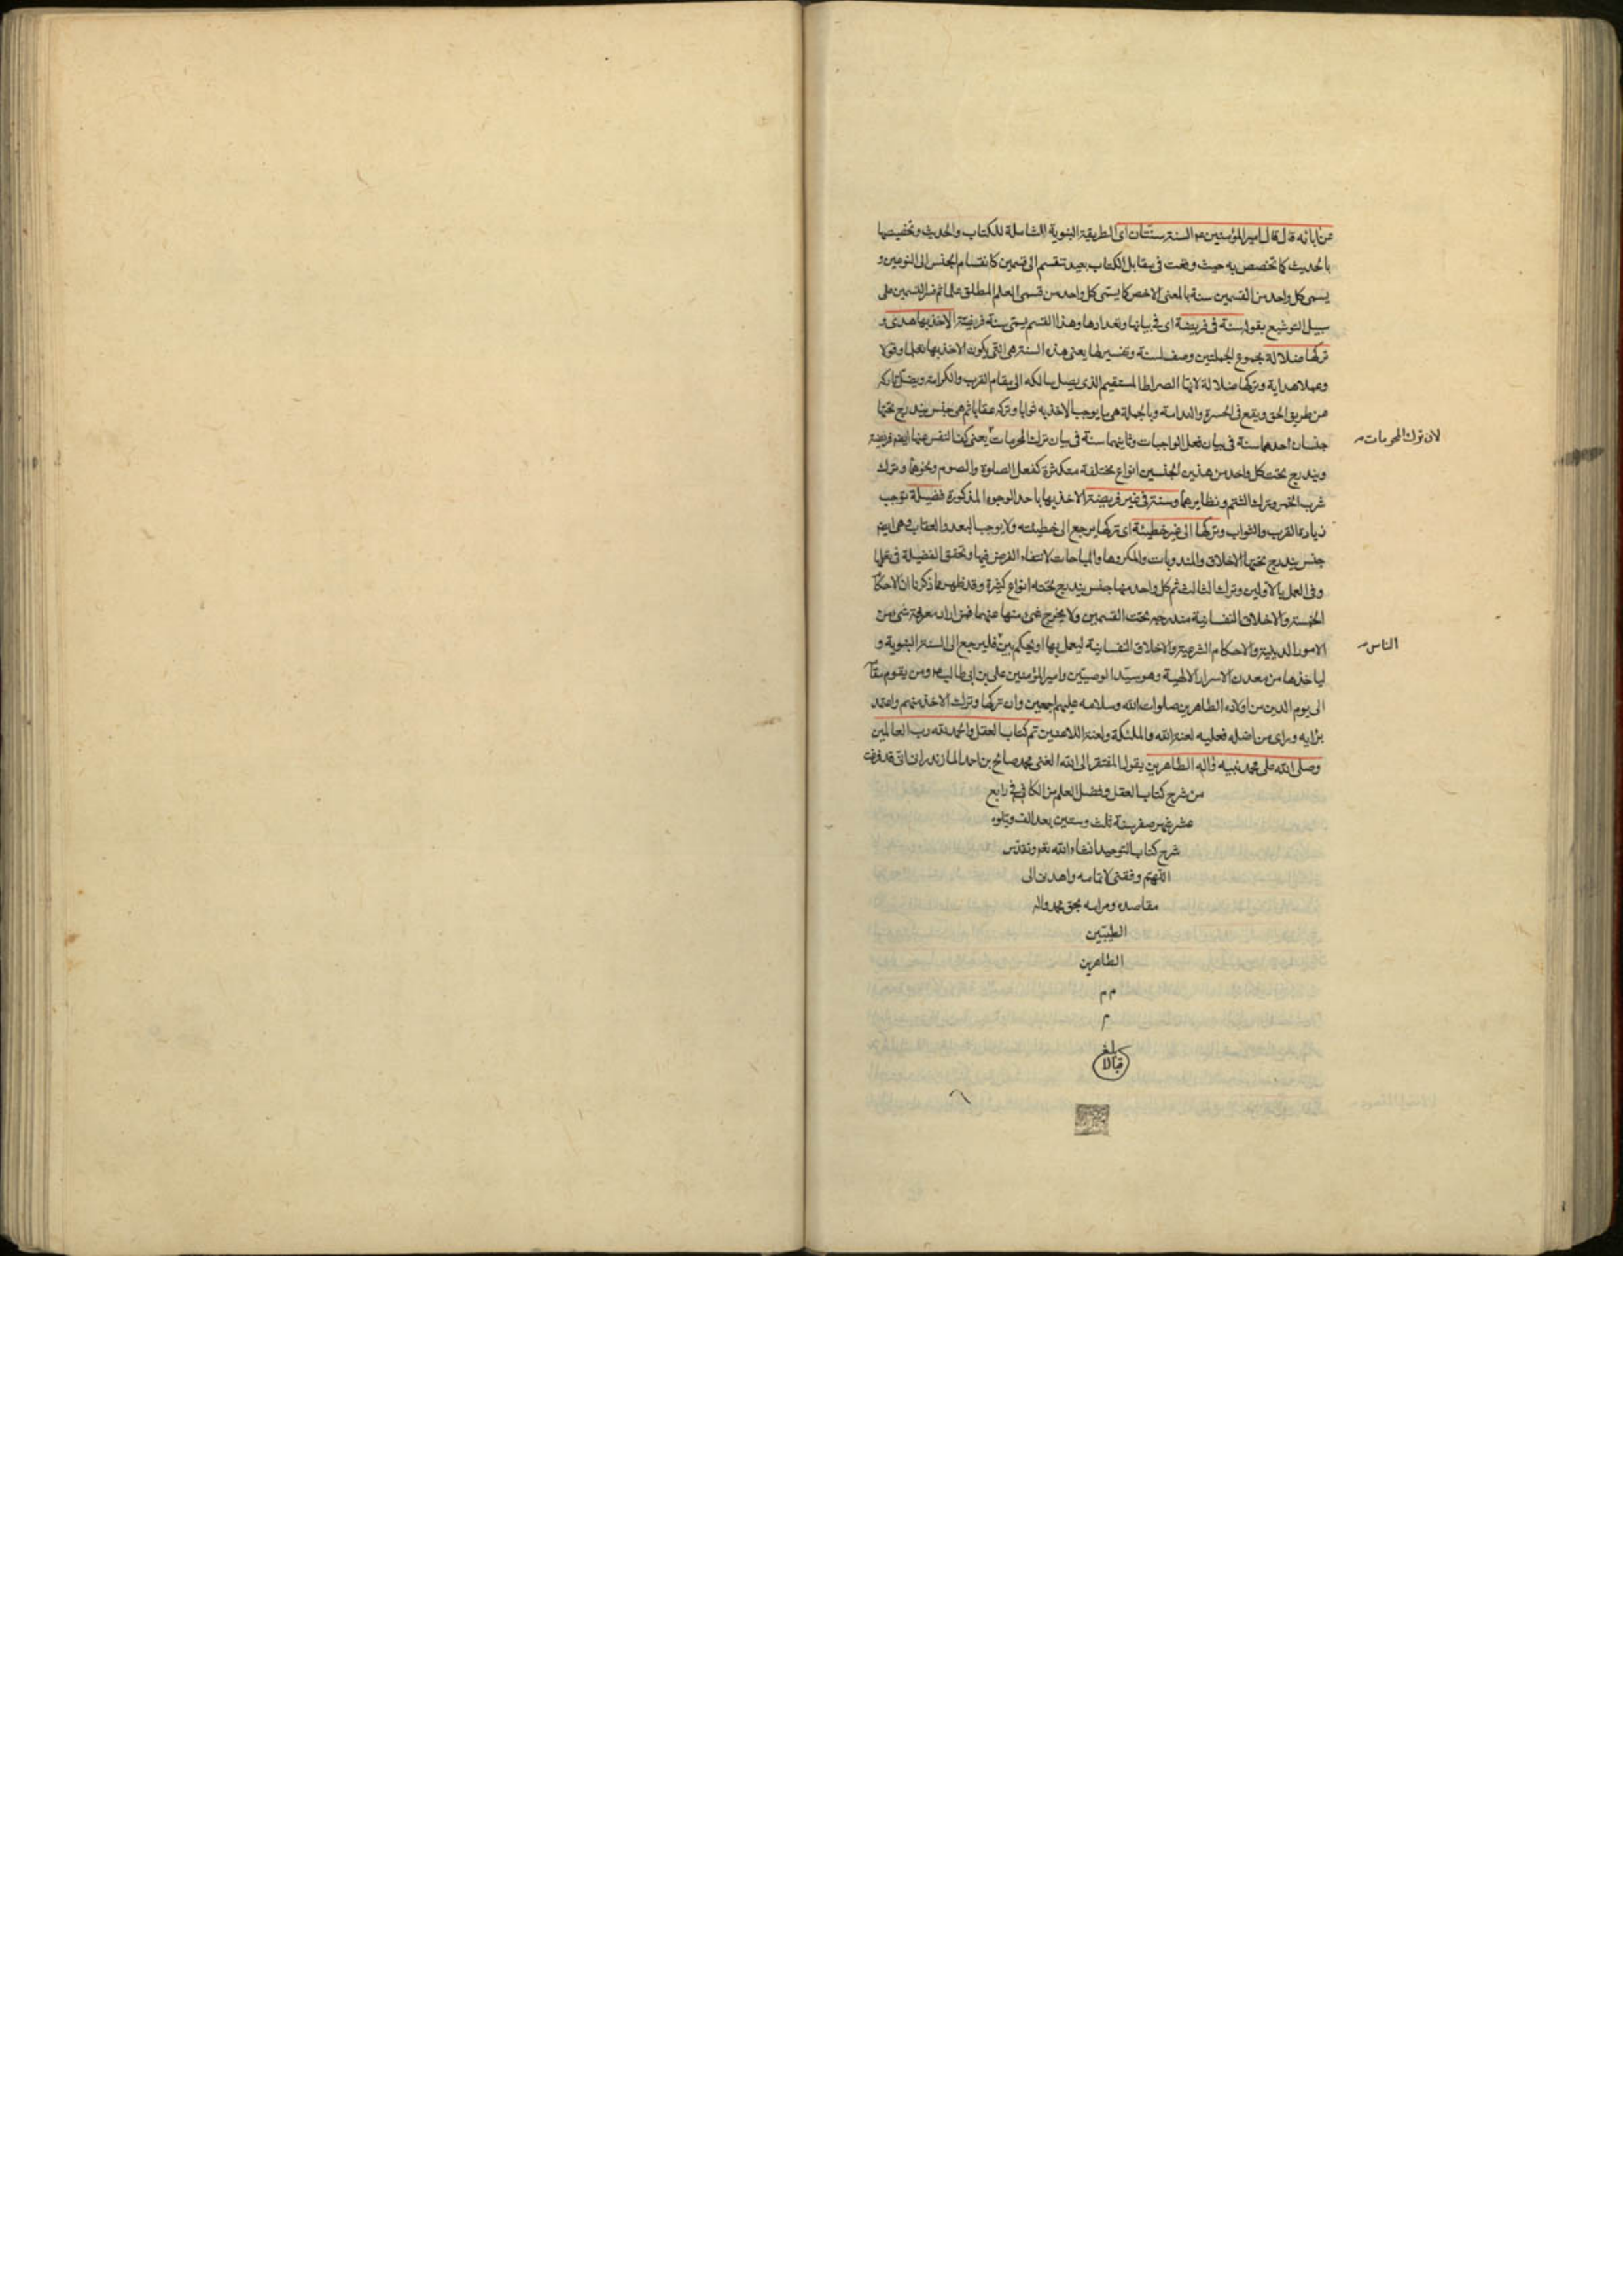 عن آبائه قال قال امير المؤمنين عم السنة سنتان اى الطريقة النبوية الشاملة للكتاب والحديث وتخصيصها
بالحديث كما تخصص به حيث وقعت فى مقابل الكتاب بعيد تنقسم الى قسمين كانقسام الجنس الى النوعين و
يسمى كل واحد من القسمين سنة بالمعنى الاخص كما يسمى كل واحد من قسمى العلم المطلق علما ثم فسر القسمين على
سبيل التوشيع بقوله سنة فى فريضة اى فى بيانها وتعدادها وهذا القسم يسمى سنة فريضة الاخذ بها هدى و
تركها ضلالة مجموع الجملتين وصف لسنة وتفسير لها يعنى هذه السنة هى التى يكون الاخذ بها تعلما وقولا
وعملا هداية وتركها ضلالة لانها الصراط المستقيم الذى يصل سالكه الى مقام القرب والكرامة ويضل تاركه
عن طريق الحق ويقع فى الحسرة والندامة وبالجملة هى ما يوجب الاخذ به ثوابا وتركه عقابا ثم هى جنس يندرج تحتها
جنسان احدهما سنة فى بيان فعل الواجبات وثانيهما سنة فى بيان ترك المحرمات يعنى كف النفس عنها ايضم فريضة
لان ترك المحرمات
ويندرج تحت كل واحد من هذين الجنسين انواع مختلفة متكثرة كفعل الصلوة والصوم ونحوهما وترك
شرب الخمر وترك الشتم ونظايرهما وسنة فى غير فريضة الاخذ بها باحد الوجوه المذكورة فضيلة توجب
زيادة القرب والثواب وتركها الى غير خطيئة اى تركها يرجع الى خطيئته ولا يوجب البعد والعقاب وهى ايضم
جنس يندرج تحتها الاخلاق والمندوبات والمكروهات والمباحات لانتفاء الفرض فيها وتحقق الفضيلة فى علمها
وفى العمل بالاولين وترك الثالث ثم كل واحد منها جنس يندرج تحته انواع كثيرة وقد ظهر مما ذكرنا ان الاحكام
الخمسة والاخلاق النفسانية مندرجة تحت القسمين ولا يخرج شىء منها عنهما فمن اراد معرفة شىء من
الامور الدينية والاحكام الشرعية والاخلاق النفسانية ليعمل بها او يحكم بين فليرجع الى السنة النبوية و
الناس
لياخذها من معدن الاسرار الالهية وهو سيد الوصيين وامير المؤمنين على بن ابى طالب عم ومن يقوم مقامه
الى يوم الدين من اولاده الطاهرين صلوات الله وسلامه عليهم اجمعين وان تركها وترك الاخذ منهم واعتمد
برايه وراى من اضله فعليه لعنة الله والملئكة ولعنة اللاعنين تم كتاب العقل والحمد لله رب العالمين
وصلى الله على محمد نبيه وآله الطاهرين يقول المفتقر الى الله الغنى محمد صالح بن احمد المازندرانى انى قد فرغت
من شرح كتاب العقل وفضل العلم من الكافى فى رابع
عشر شهر صفر سنة ثلث وستين بعد الف ويتلوه
شرح كتاب التوحيد انشاء الله تعم وتقدس
اللهم وفقنى لاتمامه واهدنى الى
مقاصده ومرامه بحق محمد واله
الطيبين
الطاهرين
م م
م
بلغ
قبالا